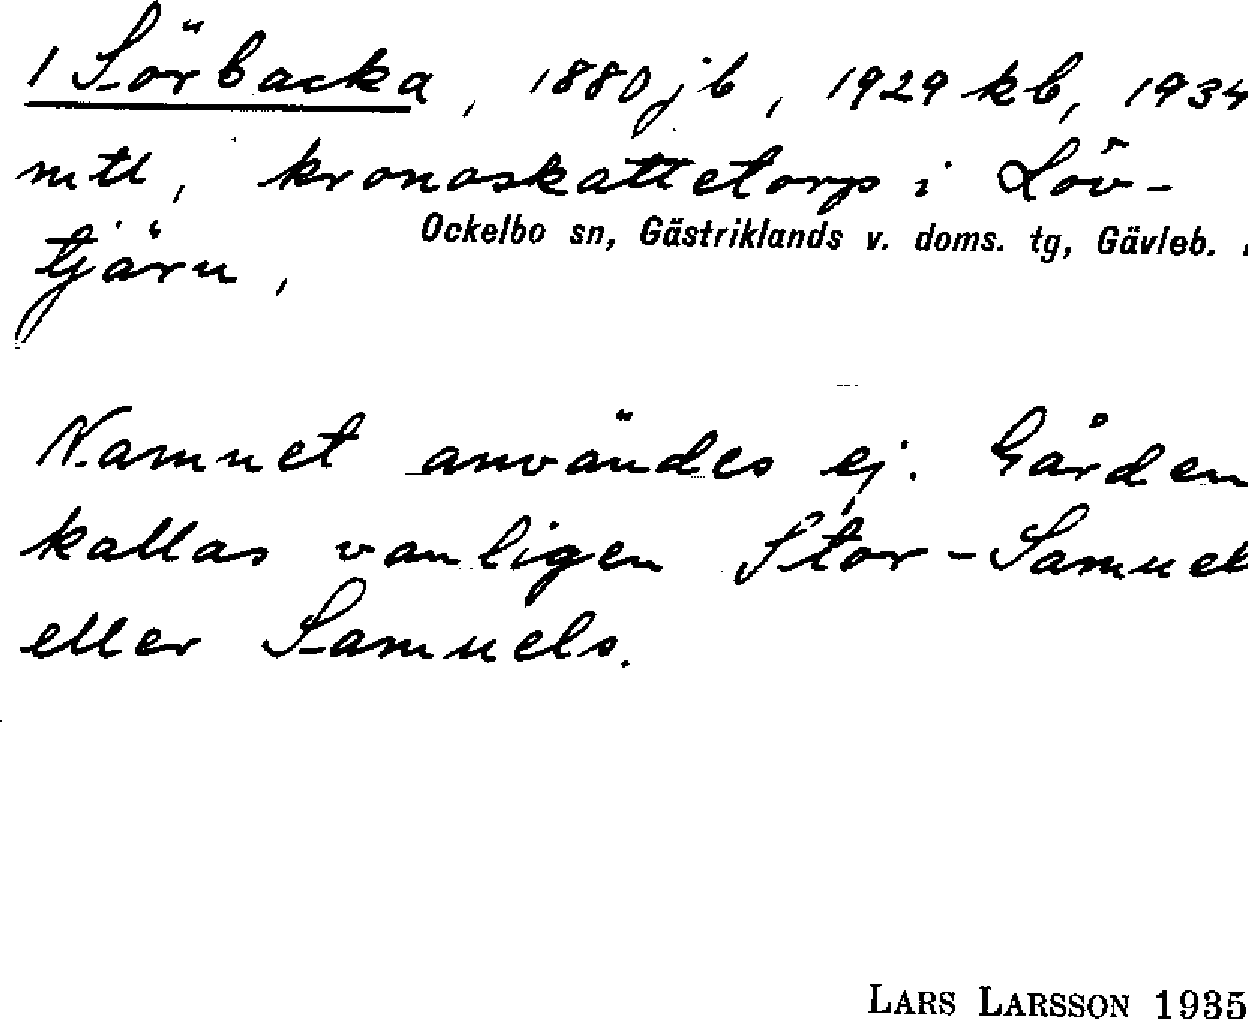 1 Sörbacka, 1880 jb, 1929 kb, 1934
mtl, kronoskattetorp i Löv-
tjärn,
Ockelbo sn, Gästriklands v. doms. tg, Gävleb.
Namnet användes ej. Gården
kallas vanligen Stor-Samuel
eller Samuels.
LARS LARSSON 1935